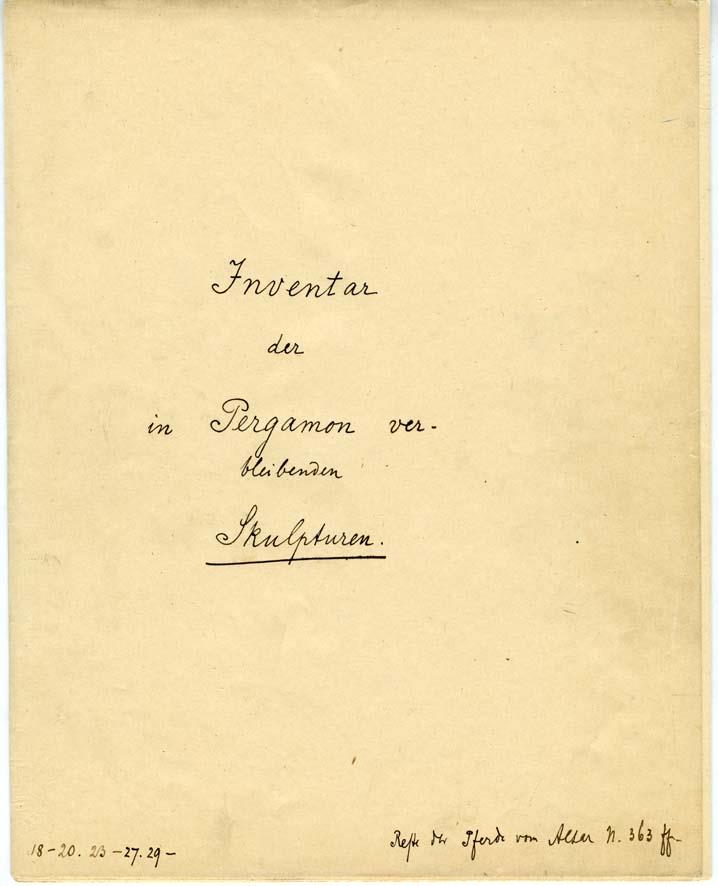 Inventar
der
in Pergamon ver-
bleibenden
Skulpturen.
Reste der Pferde vom Altar N. 363 ff.
18-20. 23-27. 29-